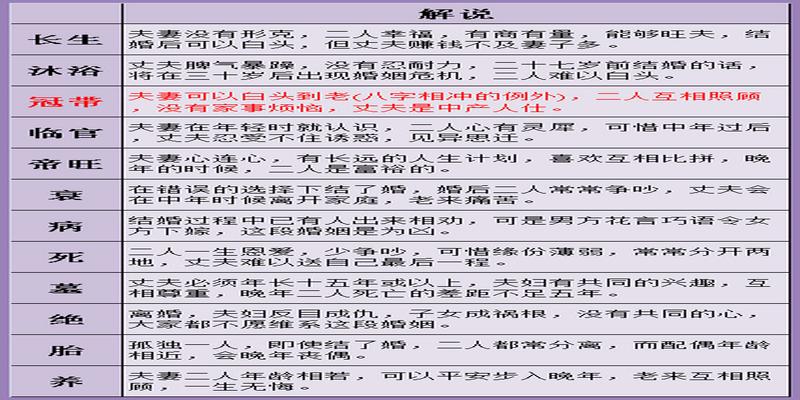 解说
长生
夫妻没有形克，二人幸福，有商有量，能够旺夫，结
婚后可以白头，但丈夫赚钱不及妻子多。
沐浴
丈夫脾气暴躁，没有忍耐力，二十七岁前结婚的话，
将在三十岁后出现婚姻危机，二人难以白头。
冠带
夫妻可以白头到老(八字相冲的例外)，二人互相照顾
，没有家事烦恼，丈夫是中产人仕。
临官
夫妻在年轻时就认识，二人心有灵犀，可惜中年过后
，丈夫忍受不住诱惑，见异思迁。
帝旺
夫妻心连心，有长远的人生计划，喜欢互相比拼，晚
年的时候，二人是富裕的。
衰
在错误的选择下结了婚，婚后二人常常争吵，丈夫会
在中年时候离开家庭，老来痛苦。
病
结婚过程中已有人出来相劝，可是男方花言巧语令女
方下嫁，这段婚姻是为凶。
死
二人一生恩爱，少争吵，可惜缘份薄弱，常常分开两
地，丈夫难以送自己最后一程。
墓
丈夫必须年长十五年或以上，夫妇有共同的兴趣，互
相尊重，晚年二人死亡的差距不足五年。
绝
离婚，夫妇反目成仇，子女成祸根，没有共同的心，
大家都不愿维系这段婚姻。
胎
孤独一人，即使结了婚，二人都常分离，而配偶年龄
相近，会晚年丧偶。
养
夫妻二人年龄相若，可以平安步入晚年，老来互相照
顾，一生无悔。